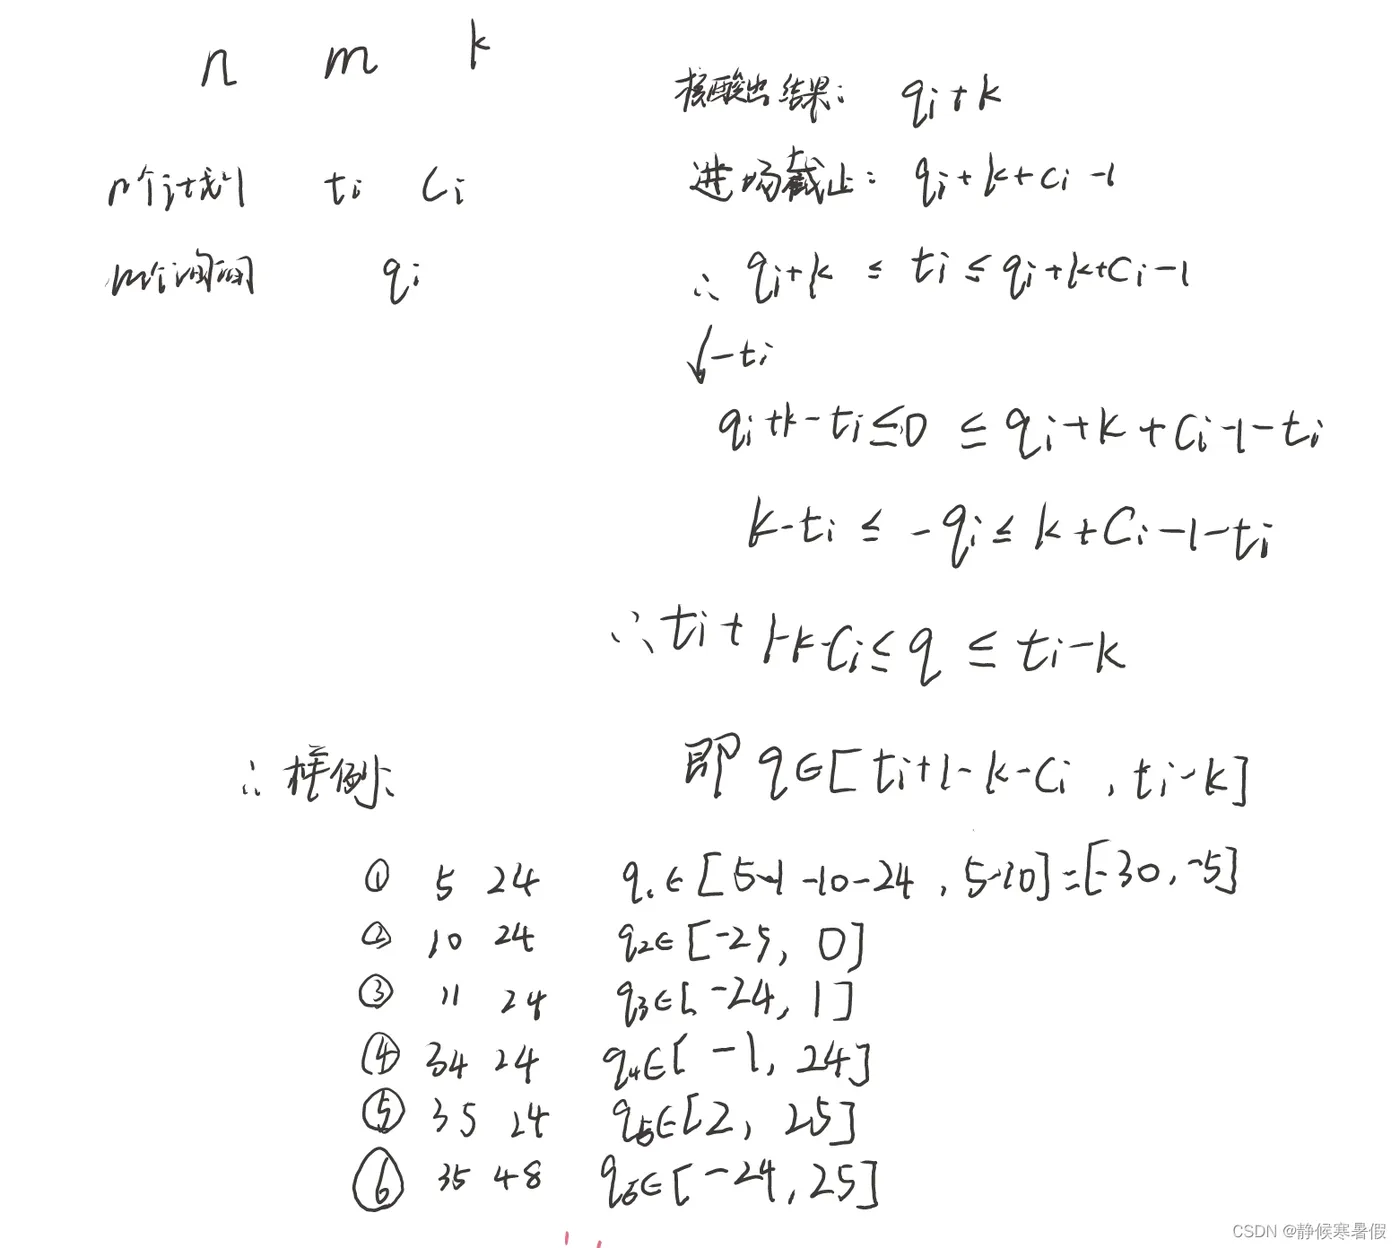 n m k
n个计划 ti Ci
m个询问 qi
核酸出结果: qi+k
进场截止: qi+k+ci-1
∴ qi+k ≤ ti ≤ qi+k+Ci-1
↓-ti
qi+k-ti≤0 ≤ qi+k+Ci-1-ti
k-ti ≤ -qi ≤ k+Ci-1-ti
∴ ti+1-k-Ci ≤ q ≤ ti-k
即 q∈[ti+1-k-Ci , ti-k]
∴ 样例:
① 5 24 q1∈[5-1-10-24 , 5-10]=[-30,-5]
② 10 24 q2∈[-25, 0]
③ 11 24 q3∈[-24, 1]
④ 34 24 q4∈[-1, 24]
⑤ 35 24 q5∈[2, 25]
⑥ 35 48 q6∈[-24, 25]
CSDN @静候寒暑假